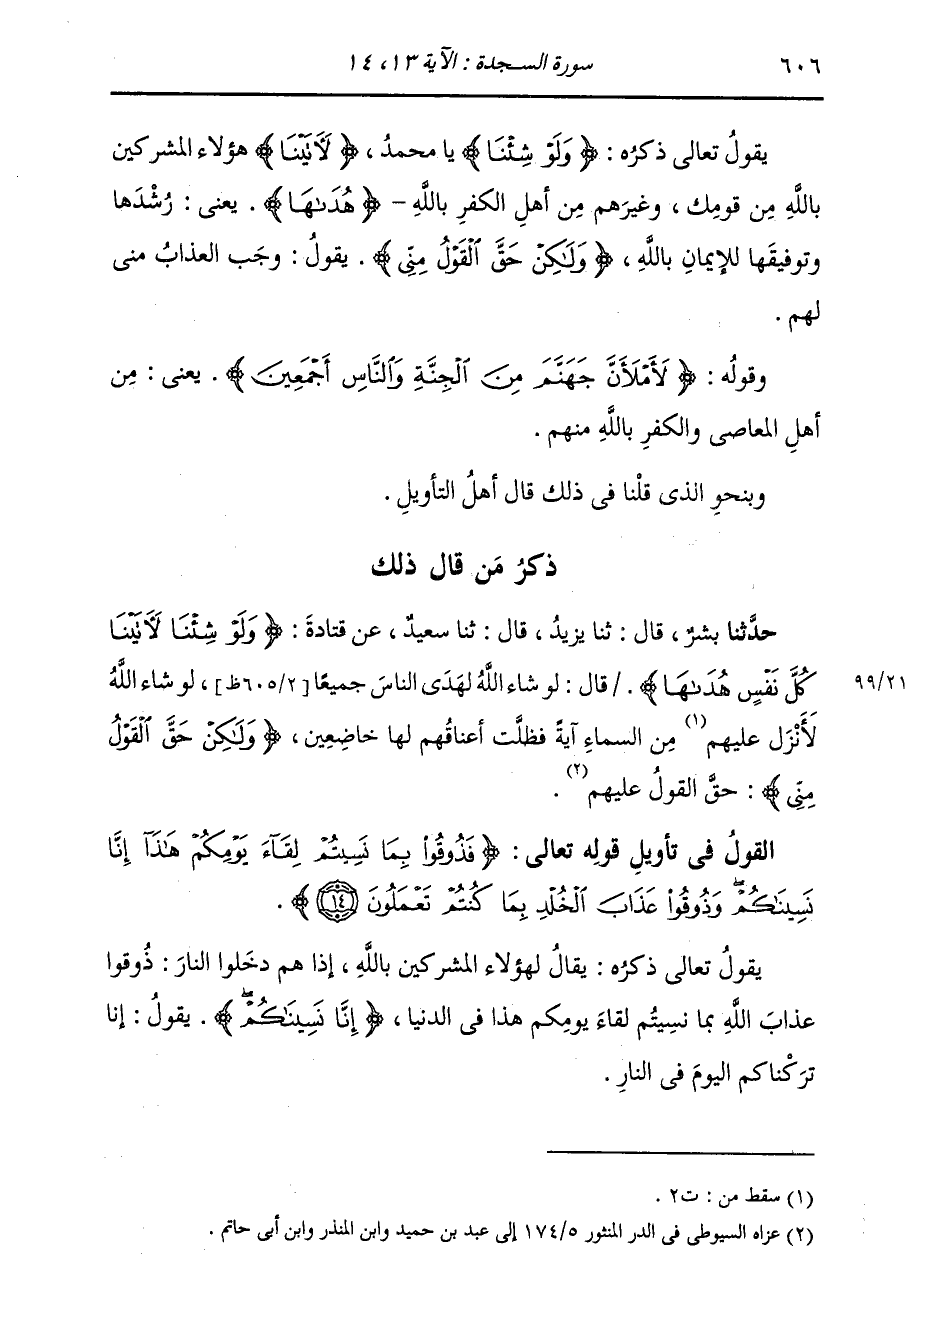 ٦٠٦ سورة السجدة : الآية ١٣، ١٤
يقولُ تعالى ذكرُه : ﴿ وَلَوْ شِئْنَا ﴾ يا محمدُ ، ﴿ لَآتَيْنَا ﴾ هؤلاء المشركين
باللَّهِ مِن قومِك ، وغيرَهم مِن أهلِ الكفرِ باللَّهِ – ﴿ هُدَىٰهَا ﴾ . يعنى : رُشْدَها
وتوفيقَها للإيمانِ باللَّهِ ، ﴿ وَلَٰكِنْ حَقَّ الْقَوْلُ مِنِّي ﴾ . يقولُ : وجَب العذابُ منى
لهم .
وقولُه : ﴿ لَأَمْلَأَنَّ جَهَنَّمَ مِنَ الْجِنَّةِ وَالنَّاسِ أَجْمَعِينَ ﴾ . يعنى : مِن
أهلِ المعاصى والكفرِ باللَّهِ منهم .
وبنحوِ الذى قلْنا فى ذلك قال أهلُ التأويلِ .
ذكرُ مَن قال ذلك
حدَّثنا بشرٌ ، قال : ثنا يزيدُ ، قال : ثنا سعيدٌ ، عن قتادةَ : ﴿ وَلَوْ شِئْنَا لَآتَيْنَا
كُلَّ نَفْسٍ هُدَىٰهَا ﴾ . / قال : لو شاء اللَّهُ لهَدَى الناسَ جميعًا [٦٠٥/٢ظ] ، لو شاء اللَّهُ ٩٩/٢١
لَأَنْزَل عليهم(١) مِن السماءِ آيةً فظلَّت أعناقُهم لها خاضِعِين ، ﴿ وَلَٰكِنْ حَقَّ الْقَوْلُ
مِنِّي ﴾ : حقَّ القولُ عليهم(٢) .
القولُ فى تأويلِ قولِه تعالى : ﴿ فَذُوقُوا۟ بِمَا نَسِيتُمْ لِقَآءَ يَوْمِكُمْ هَٰذَآ إِنَّا
نَسِينَٰكُمْ ۖ وَذُوقُوا۟ عَذَابَ الْخُلْدِ بِمَا كُنتُمْ تَعْمَلُونَ ١٤ ﴾ .
يقولُ تعالى ذكرُه : يقالُ لهؤلاء المشركين باللَّهِ ، إذا هم دخَلوا النارَ : ذُوقوا
عذابَ اللَّهِ بما نسيتُم لقاءَ يومِكم هذا فى الدنيا ، ﴿ إِنَّا نَسِينَٰكُمْ ۖ ﴾ . يقولُ : إنا
ترَكْناكم اليومَ فى النارِ .
(١) سقط من : ت٢ .
(٢) عزاه السيوطى فى الدر المنثور ١٧٤/٥ إلى عبد بن حميد وابن المنذر وابن أبى حاتم .